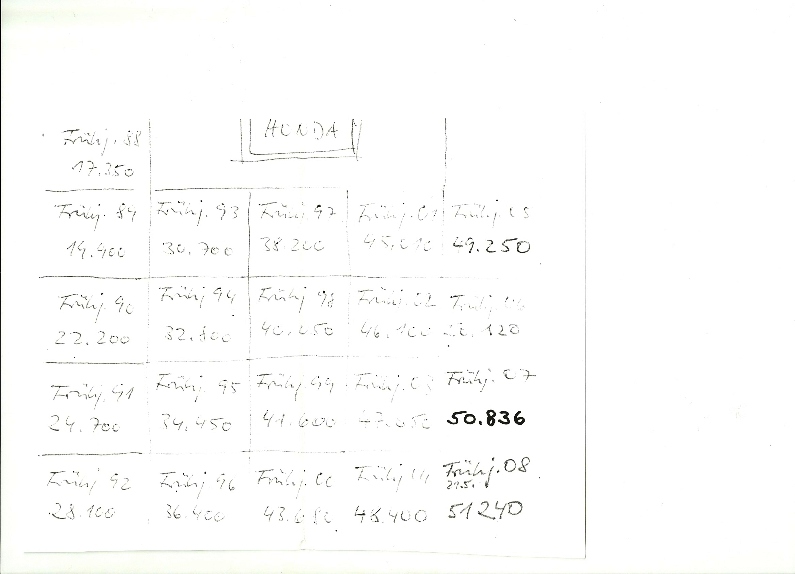 HONDA
Frühj. 88
17.350
Frühj. 89
19.400
Frühj. 93
30.700
Frühj. 97
38.200
Frühj. 01
Frühj. 05
49.250
Frühj. 90
22.200
Frühj 94
32.800
Frühj 98
40.050
Frühj. 02
46.100
Frühj. 91
24.700
Frühj. 95
34.450
Frühj. 99
41.600
Frühj. 03
47.050
Frühj. 07
50.836
Frühj 92
28.100
Frühj. 96
36.400
Frühj. 00
Frühj
48.400
Frühj. 08
21.5.
51240